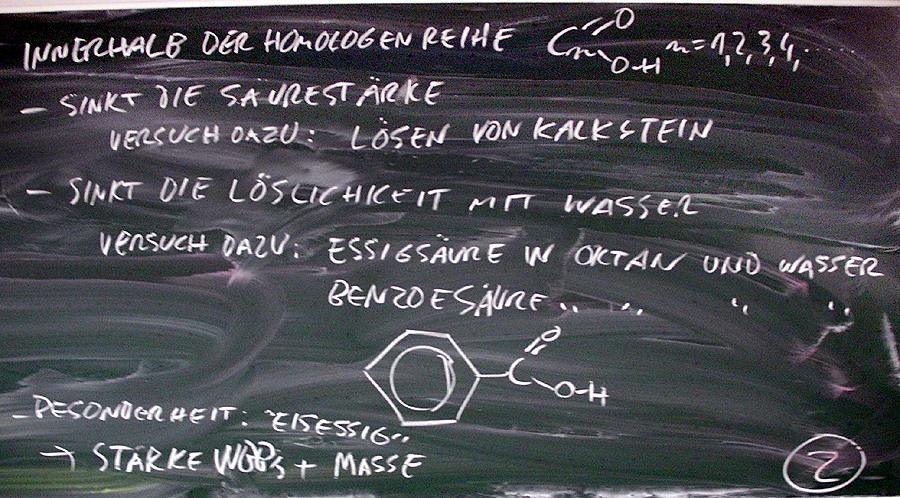 INNERHALB DER HOMOLOGEN REIHE CnO O-H n=1,2,3,4, .....
- SINKT DIE SÄURESTÄRKE
VERSUCH DAZU: LÖSEN VON KALKSTEIN
- SINKT DIE LÖSLICHKEIT MIT WASSER
VERSUCH DAZU: ESSIGSÄURE IN OKTAN UND WASSER
BENZOESÄURE " " " "
C O O-H
- BESONDERHEIT: "EISESSIG"
→ STÄRKE WBB's + MASSE
2